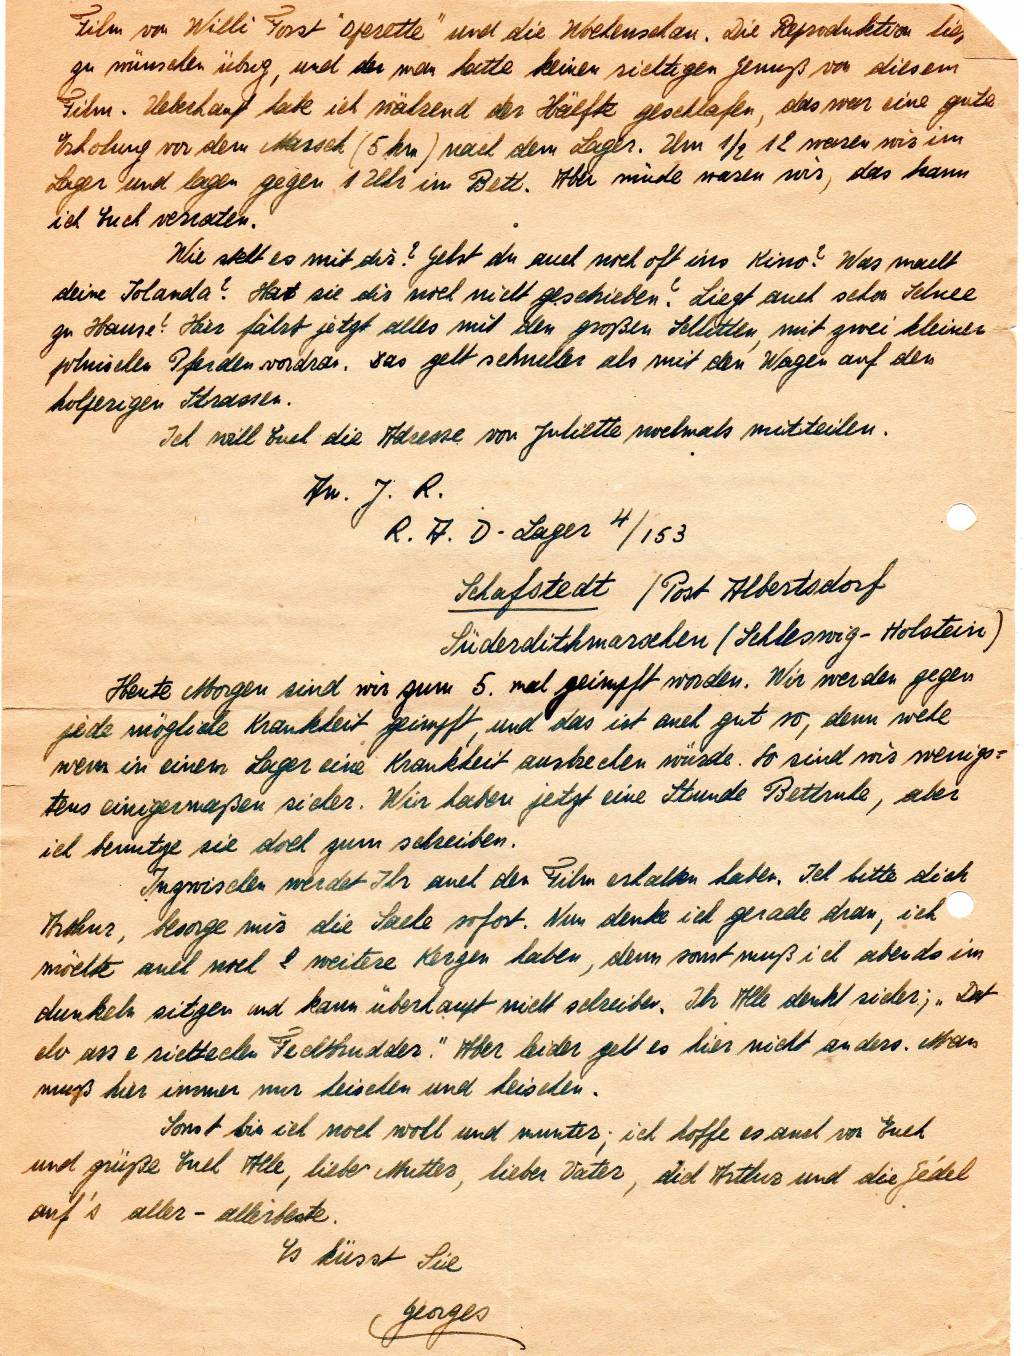 Film von Willi Forst "Operette" und die Wochenschau. Die Reproduktion ließ
zu wünschen übrig, und der man hatte keinen richtigen Genuß von diesem
Film. Ueberhaupt habe ich während der Hälfte geschlafen, das war eine gute
Erholung vor dem Marsch (5 km) nach dem Lager. Um 1/2 12 waren wir im
Lager und lagen gegen 1 Uhr im Bett. Aber müde waren wir, das kann
ich Euch verraten.
Wie steht es mit dir? Gehst du auch noch oft ins Kino? Was macht
deine Iolanda? Hat sie dir noch nicht geschrieben? Liegt auch schon Schnee
zu Hause? Hier fährt jetzt alles mit den großen Schlitten, mit zwei kleinen
polnischen Pferden vordran. Das geht schneller als mit den Wagen auf den
holperigen Strassen.
Ich will Euch die Adresse von Juliette nochmals mitteilen.
An. J. R.
R. A. D-Lager 4/153
Schafstedt /Post Albertsdorf
Süderdithmarschen (Schleswig-Holstein)
Heute Morgen sind wir zum 5. mal geimpft worden. Wir werden gegen
jede mögliche Krankheit geimpft, und das ist auch gut so, denn wehe
wenn in einem Lager eine Krankheit ausbrechen würde. So sind wir wenigs=
tens einigermaßen sicher. Wir haben jetzt eine Stunde Bettruhe, aber
ich benutze sie doch zum schreiben.
Inzwischen werdet Ihr auch den Film erhalten haben. Ich bitte dich
Arthur, besorge mir die Sache sofort. Nun denke ich gerade dran, ich
möchte auch noch 2 weitere Kerzen haben, denn sonst muß ich abends im
dunkeln sitzen und kann überhaupt nicht schreiben. Ihr Alle denkt sicher; „Dat
elo ass e richtechen Fechtbudder." Aber leider geht es hier nicht anders. Man
muß hier immer nur heischen und heischen.
Sonst bin ich noch wohl und munter; ich hoffe es auch von Euch
und grüße Euch Alle, liebe Mutter, lieber Vater, dich Arthur und die Gédel
auf's aller-allerbeste.
Es küsst Sie
Georges